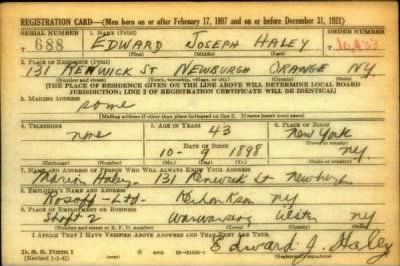 REGISTRATION CARD—(Men born on or after February 17, 1897 and on or before December 31, 1921)
SERIAL NUMBER 1. NAME (Print) ORDER NUMBER
T 688 EDWARD JOSEPH HALEY T 10,433
(First) (Middle) (Last)
2. PLACE OF RESIDENCE (Print)
131 RENWICK ST NEWBURGH ORANGE NY
(Number and street) (Town, township, village, or city) (County) (State)
[THE PLACE OF RESIDENCE GIVEN ON THE LINE ABOVE WILL DETERMINE LOCAL BOARD
JURISDICTION; LINE 2 OF REGISTRATION CERTIFICATE WILL BE IDENTICAL]
3. MAILING ADDRESS
Same
[Mailing address if other than place indicated on line 2. If same insert word same]
4. TELEPHONE 5. AGE IN YEARS 6. PLACE OF BIRTH
none 43 New York
DATE OF BIRTH
10- 9 1898 NY
(Exchange) (Number) (Mo.) (Day) (Yr.) (State or country)
7. NAME AND ADDRESS OF PERSON WHO WILL ALWAYS KNOW YOUR ADDRESS
Marion Haley 131 Renwick St Newburgh
8. EMPLOYER'S NAME AND ADDRESS
Rosoff - Ltd- Kerhonkson NY
9. PLACE OF EMPLOYMENT OR BUSINESS
Shaft 2 Wawarsing Ulster NY
(Number and street or R. F. D. number) (Town) (County) (State)
I AFFIRM THAT I HAVE VERIFIED ABOVE ANSWERS AND THAT THEY ARE TRUE.
D. S. S. Form 1
(Revised 1-1-42) Edward J. Haley